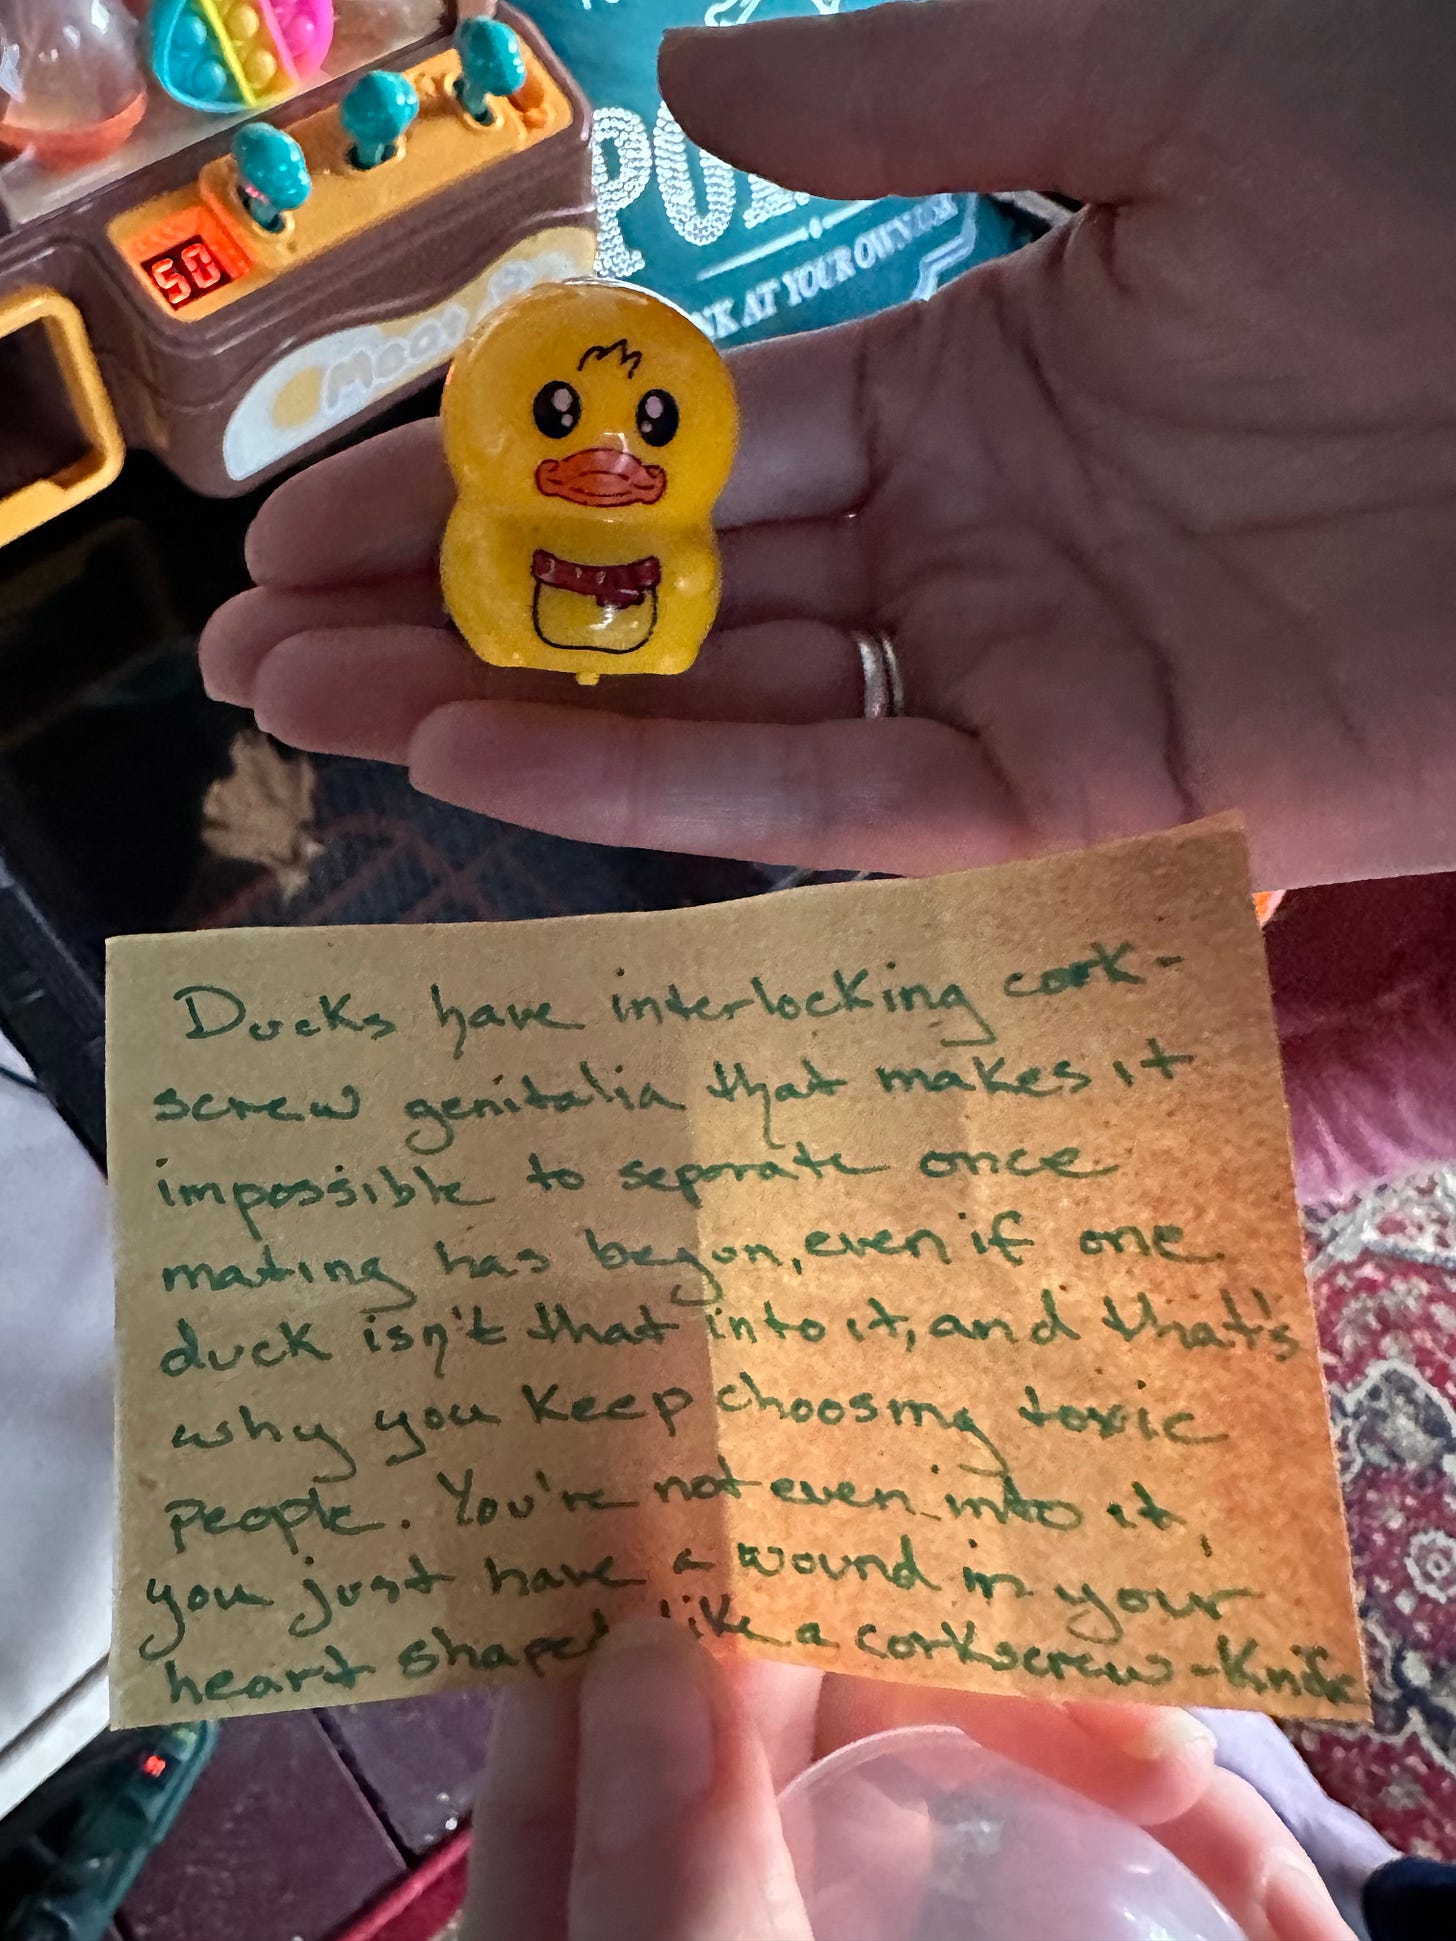 50
PU
K AT YOUR OWN
Ducks have interlocking cork-
screw genitalia that makes it
impossible to separate once
mating has begun, even if one
duck isn't that into it, and that's
why you keep choosing toxic
people. You're not even into it,
you just have a wound in your
heart shaped like a corkscrew-knife